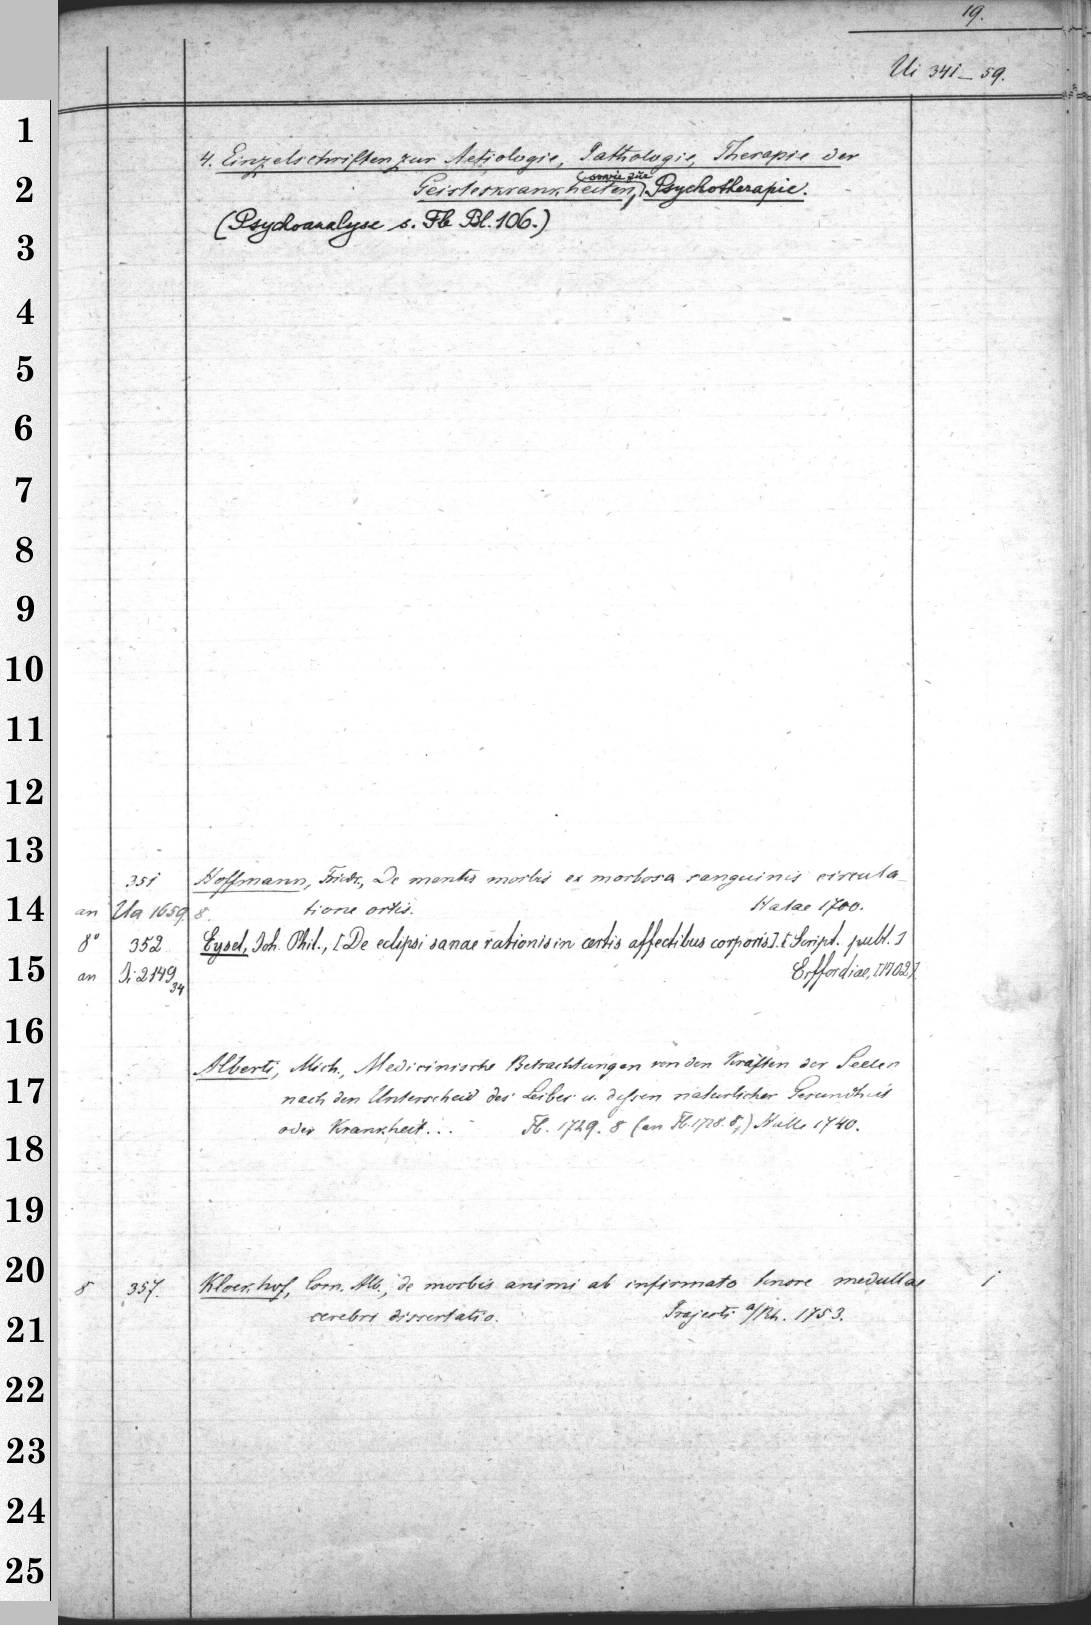 19.
Ui 341-59.
4. Einzelschriften zur Aetiologie, Pathologie, Therapie der
Geisteskrankheiten, (sowie zur) Psychotherapie.
(Psychoanalyse s. Fb Bl. 106.)
351 Hoffmann, Friedr., De mentis morbis ex morbosa sanguinis circula-
an Ua 1659 8. tione ortis. Halae 1700.
8° 352 Eysel, Joh. Phil., [De eclipsi sanae rationis in certis affectibus corporis]. [Script. publ.]
an Ji 2149 34 Erffordiae, [1702].
Alberti, Mich., Medicinische Betrachtungen von den Kräften der Seelen
nach den Unterscheid des Leibes u. dessen natürlicher Gesundheit
oder Krankheit... Fb. 1729. 8 (an Fb. 1728. 8,) Halle 1740.
8 357. Kloekhof, Corn. Alb., de morbis animi ab infirmato tenore medullae 1
cerebri dissertatio. Trajecti a/Rh. 1753.
1
2
3
4
5
6
7
8
9
10
11
12
13
14
15
16
17
18
19
20
21
22
23
24
25